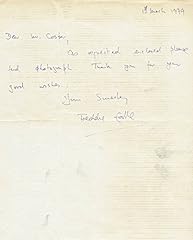 1st March 1979
Dear Mr. Cosbey
As requested enclosed please
find photograph. Thank you for your
good wishes.
Yours Sincerely
Freddie